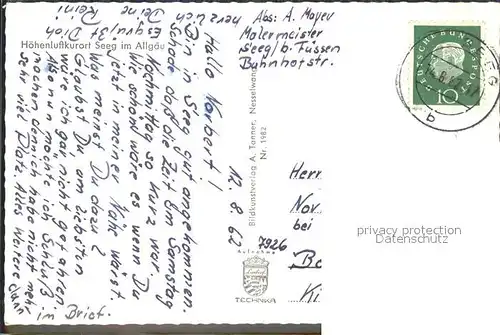 Höhenluftkurort Seeg im Allgäu
12.8.62
Hallo Norbert!
Bin in Seeg gut angekommen.
Schade daß die Zeit am Samstag
Nachmittag so kurz war.
Wie schön wäre es wenn Du
jetzt in meiner Nähe wärst
Was meinst Du dazu?
Gigubst Du am liebsten
wäre ich gar nicht gefahren
Ab nun möchte ich Schluß
machen denn ich habe nicht mehr
sehr viel Platz. Alles Weitere dann
im Brief.
Es grüßt Dich
herzlich
Deine Reini
Abs: A. Mayer
Malermeister
Seeg/b. Füssen
Bahnhofstr.
Bildkunstverlag A. Tanner, Nesselwang
Nr. 1982
7926
Aufnahme
TECHNIKA
DEUTSCHE BUNDESPOST
10
b
Herr
Nor
bei
privacy protection
Datenschutz